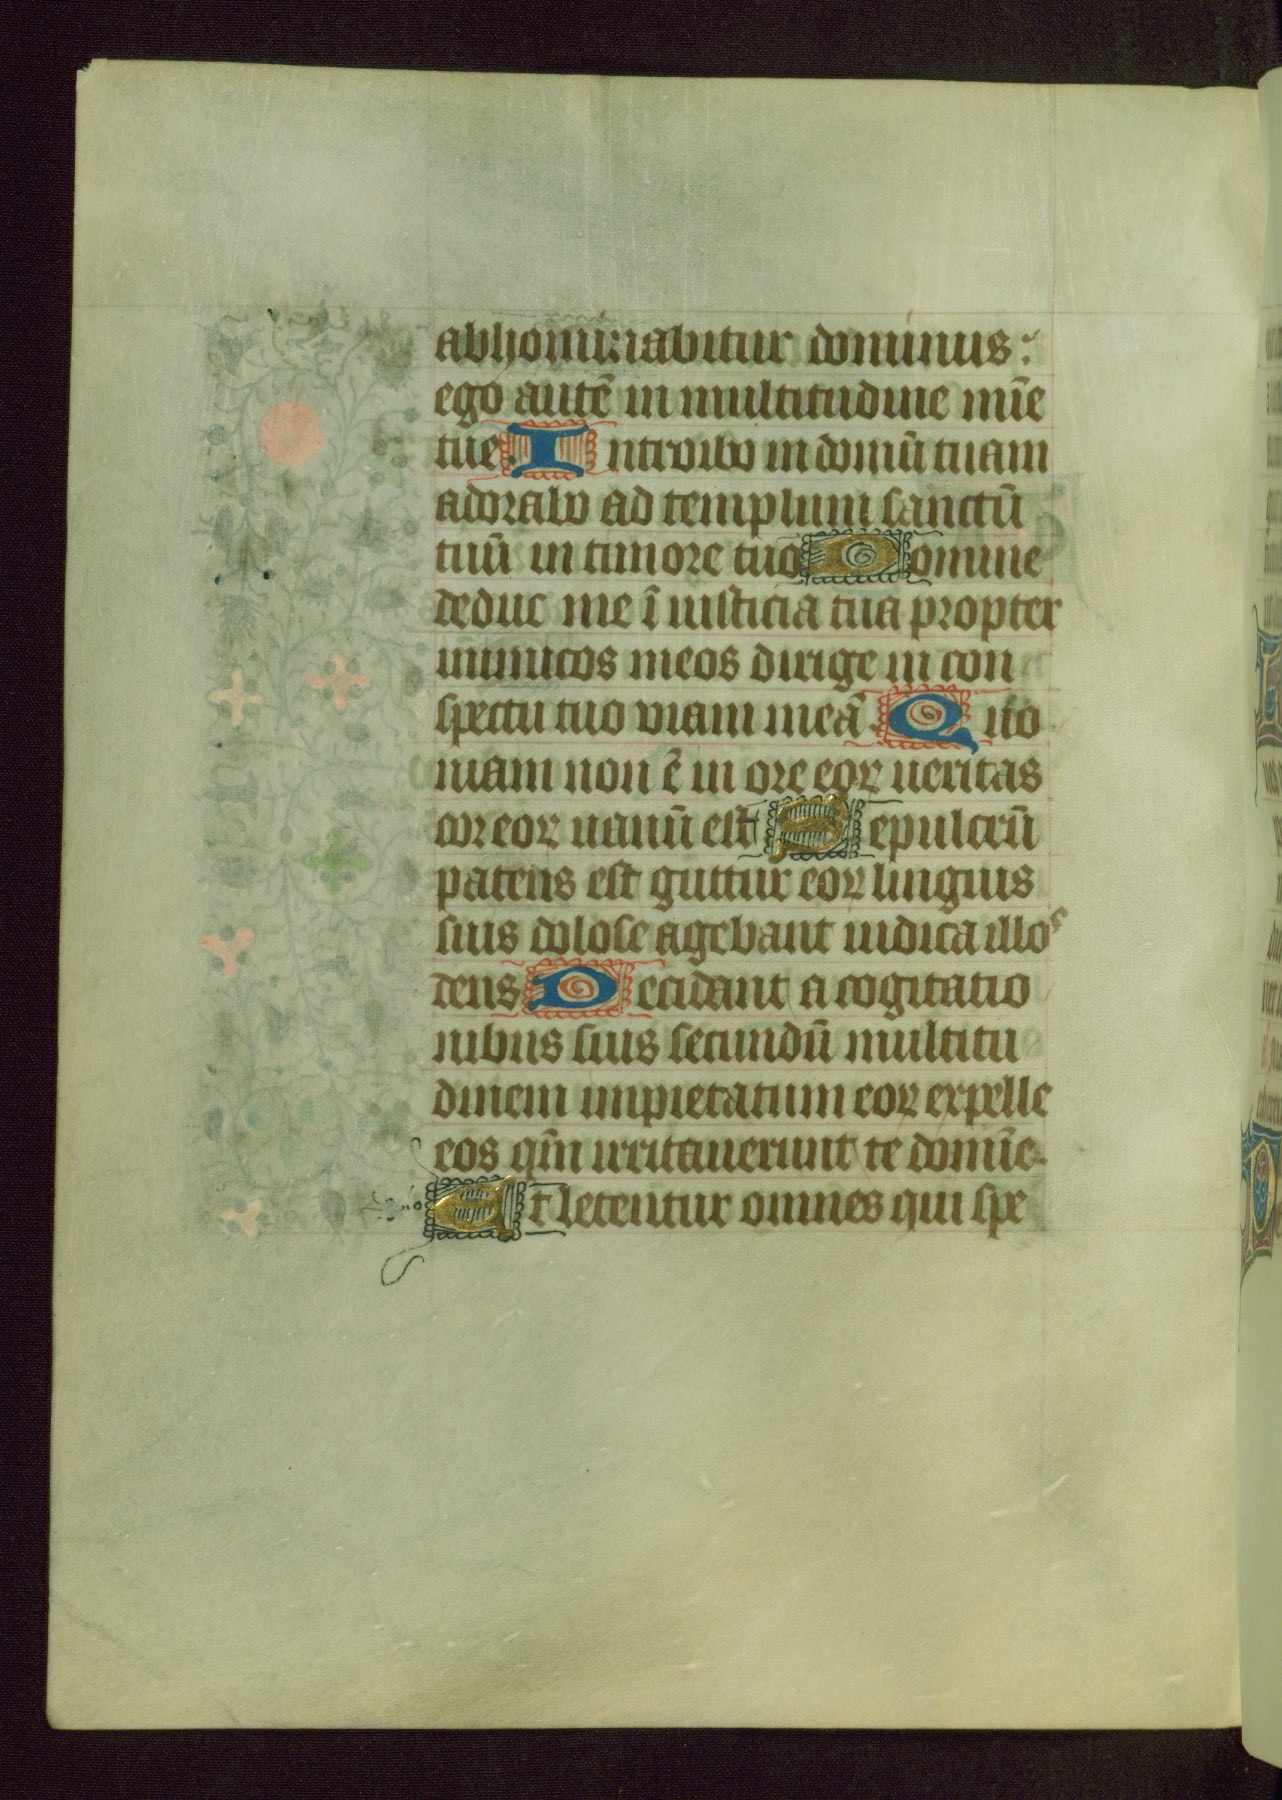 abhominabitur dominus:
ego autē in multitudine mīe
tue. Introibo in domū tuam
adorabo ad templum sanctū
tuū in timore tuo Domine
deduc me ī iusticia tua propter
inimicos meos dirige in con
spectu tuo viam meā. Quo
niam non ē in ore eoꝝ ueritas
cor eoꝝ uanū est Sepulcrū
patens est guttur eoꝝ linguis
suis dolose agebant iudica illos
deus Decidant a cogitatio
nibus suis secundū multitu
dinem impietatum eoꝝ expelle
eos qm̄ irritauerunt te domīe.
Et letentur omnes qui spe